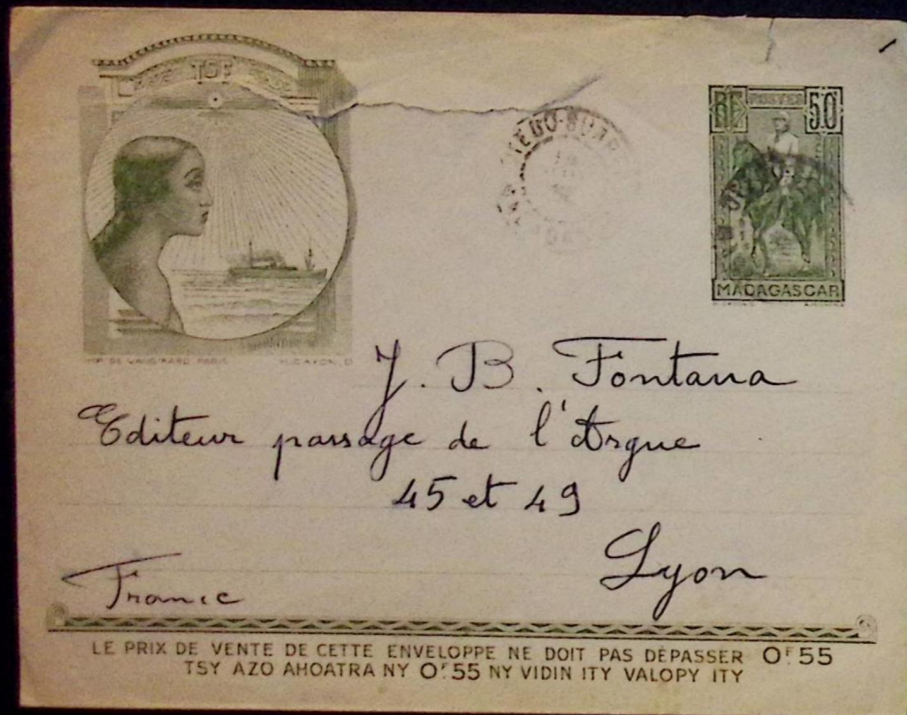 TSF
RF POSTES 50
MADAGASCAR
IMP. DE VAUGIRARD, PARIS
J. B. Fontana
Editeur passage de l'Argue
45 et 49
Lyon
France
LE PRIX DE VENTE DE CETTE ENVELOPPE NE DOIT PAS DÉPASSER 0F55
TSY AZO AHOATRA NY 0F55 NY VIDIN ITY VALOPY ITY